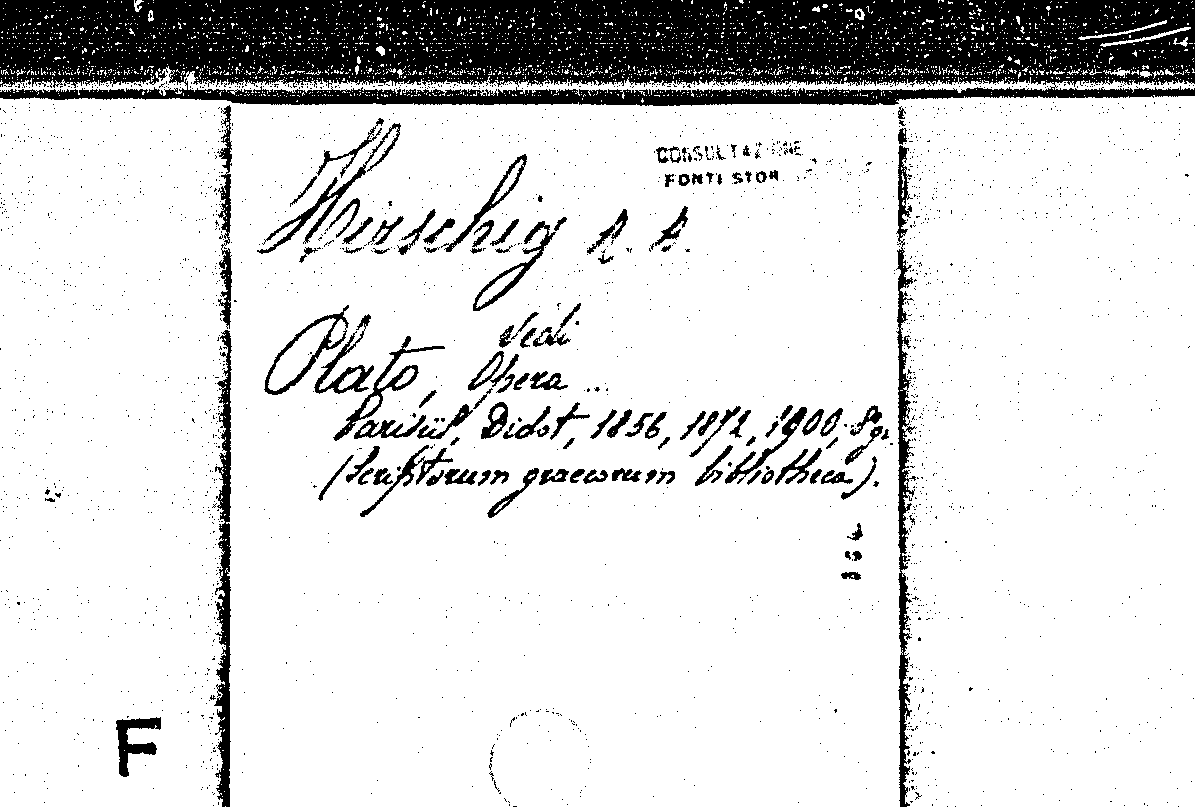 CONSULTAZIONE
FONTI STOR
Hirschig R. B.
Vedi
Plato, Opera ...
Parisiis, Didot, 1856, 1872, 1900, 8° gr.
(Scriptorum graecorum bibliotheca).
F